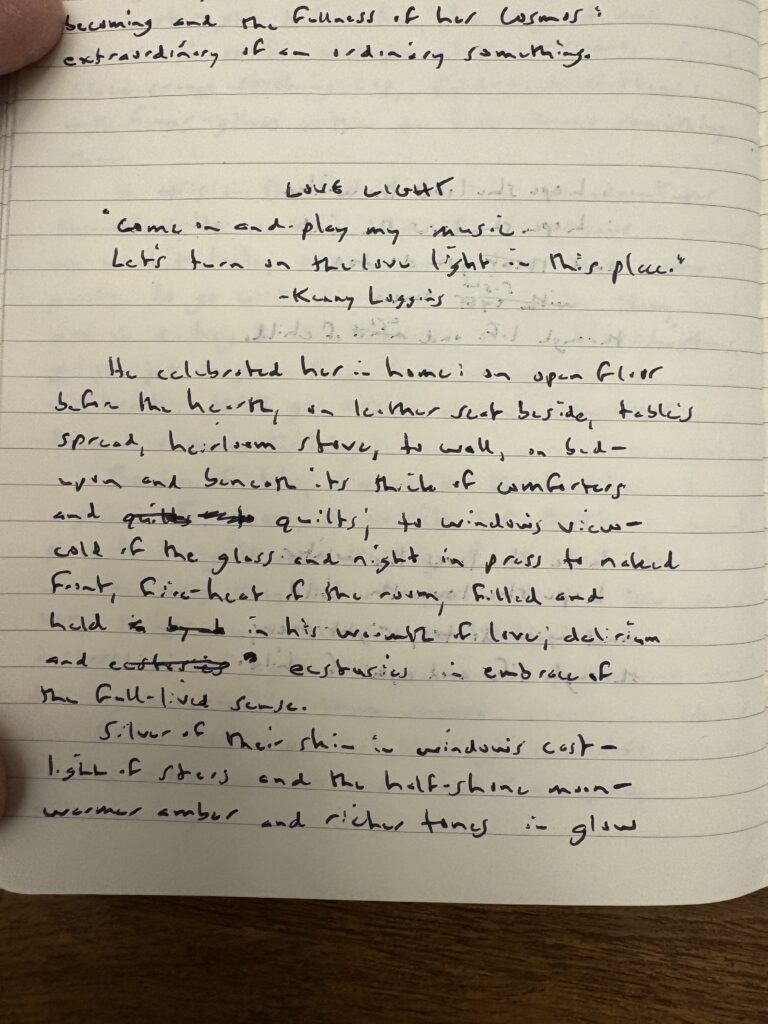 becoming and the fullness of her cosmos:
extraordinary of an ordinary something.
LOVE LIGHT
"Come on and play my music.
Let's turn on the love light in this place."
-Kenny Loggins
He celebrated her in home: on open floor
before the hearth, on leather seat beside, table's
spread, heirloom stove, to wall, on bed-
upon and beneath its thick of comforters
and quilts; to windows view-
cold of the glass and night in press to naked
front, fire-heat of the room, filled and
held in his warmth of love; delirium
and ecstasies in embrace of
the full-lived sense.
Silver of their skin in windows cast-
light of stars and the half-shone moon-
warmer amber and richer tones in glow